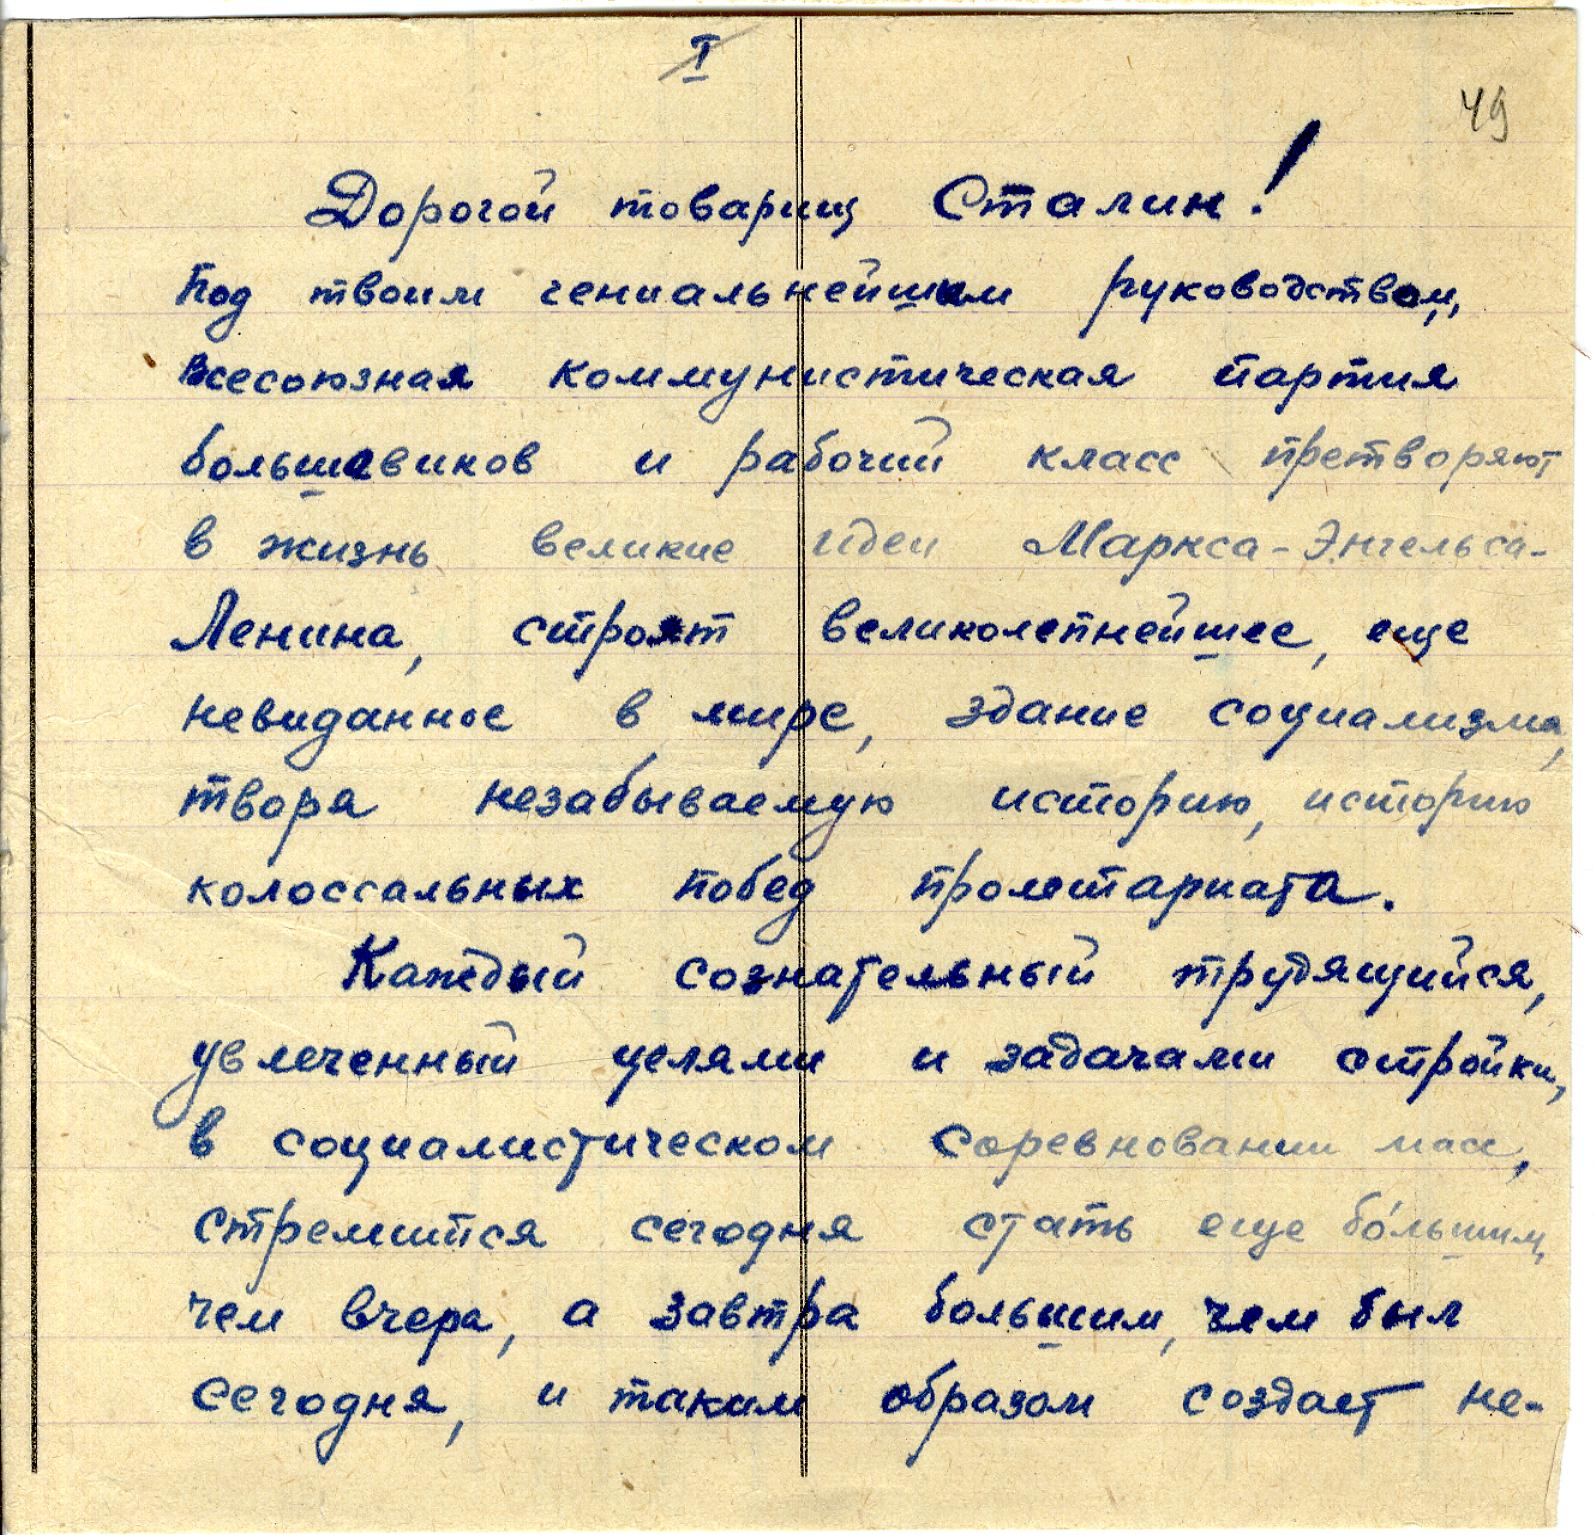 I
49
Дорогой товарищ Сталин!
Под твоим гениальнейшим руководством,
всесоюзная коммунистическая партия
большевиков и рабочий класс претворяют
в жизнь великие идеи Маркса-Энгельса-
Ленина, строят великолепнейшее, еще
невиданное в мире, здание социализма,
творя незабываемую историю, историю
колоссальных побед пролетариата.
Каждый сознательный трудящийся,
увлеченный целями и задачами стройки,
в социалистическом соревновании масс,
стремится сегодня стать еще бо́льшим,
чем вчера, а завтра большим, чем был
сегодня, и таким образом создает не-